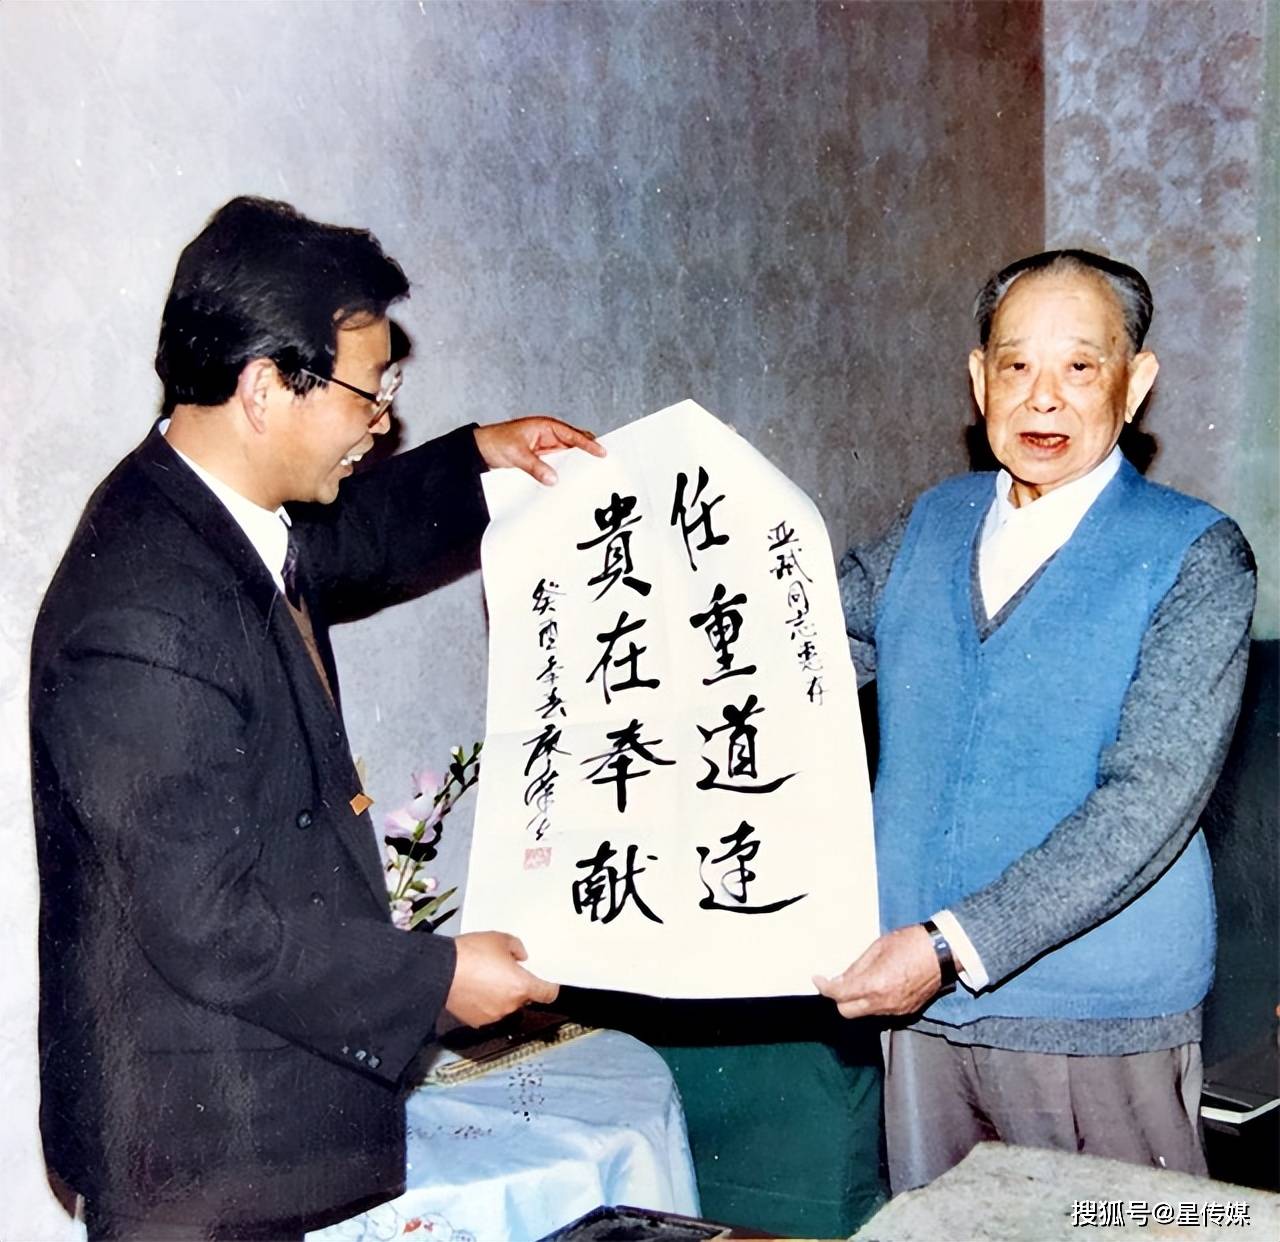 亚斌同志惠存
任重道遠
貴在奉献
癸酉年春
搜狐号@星传媒